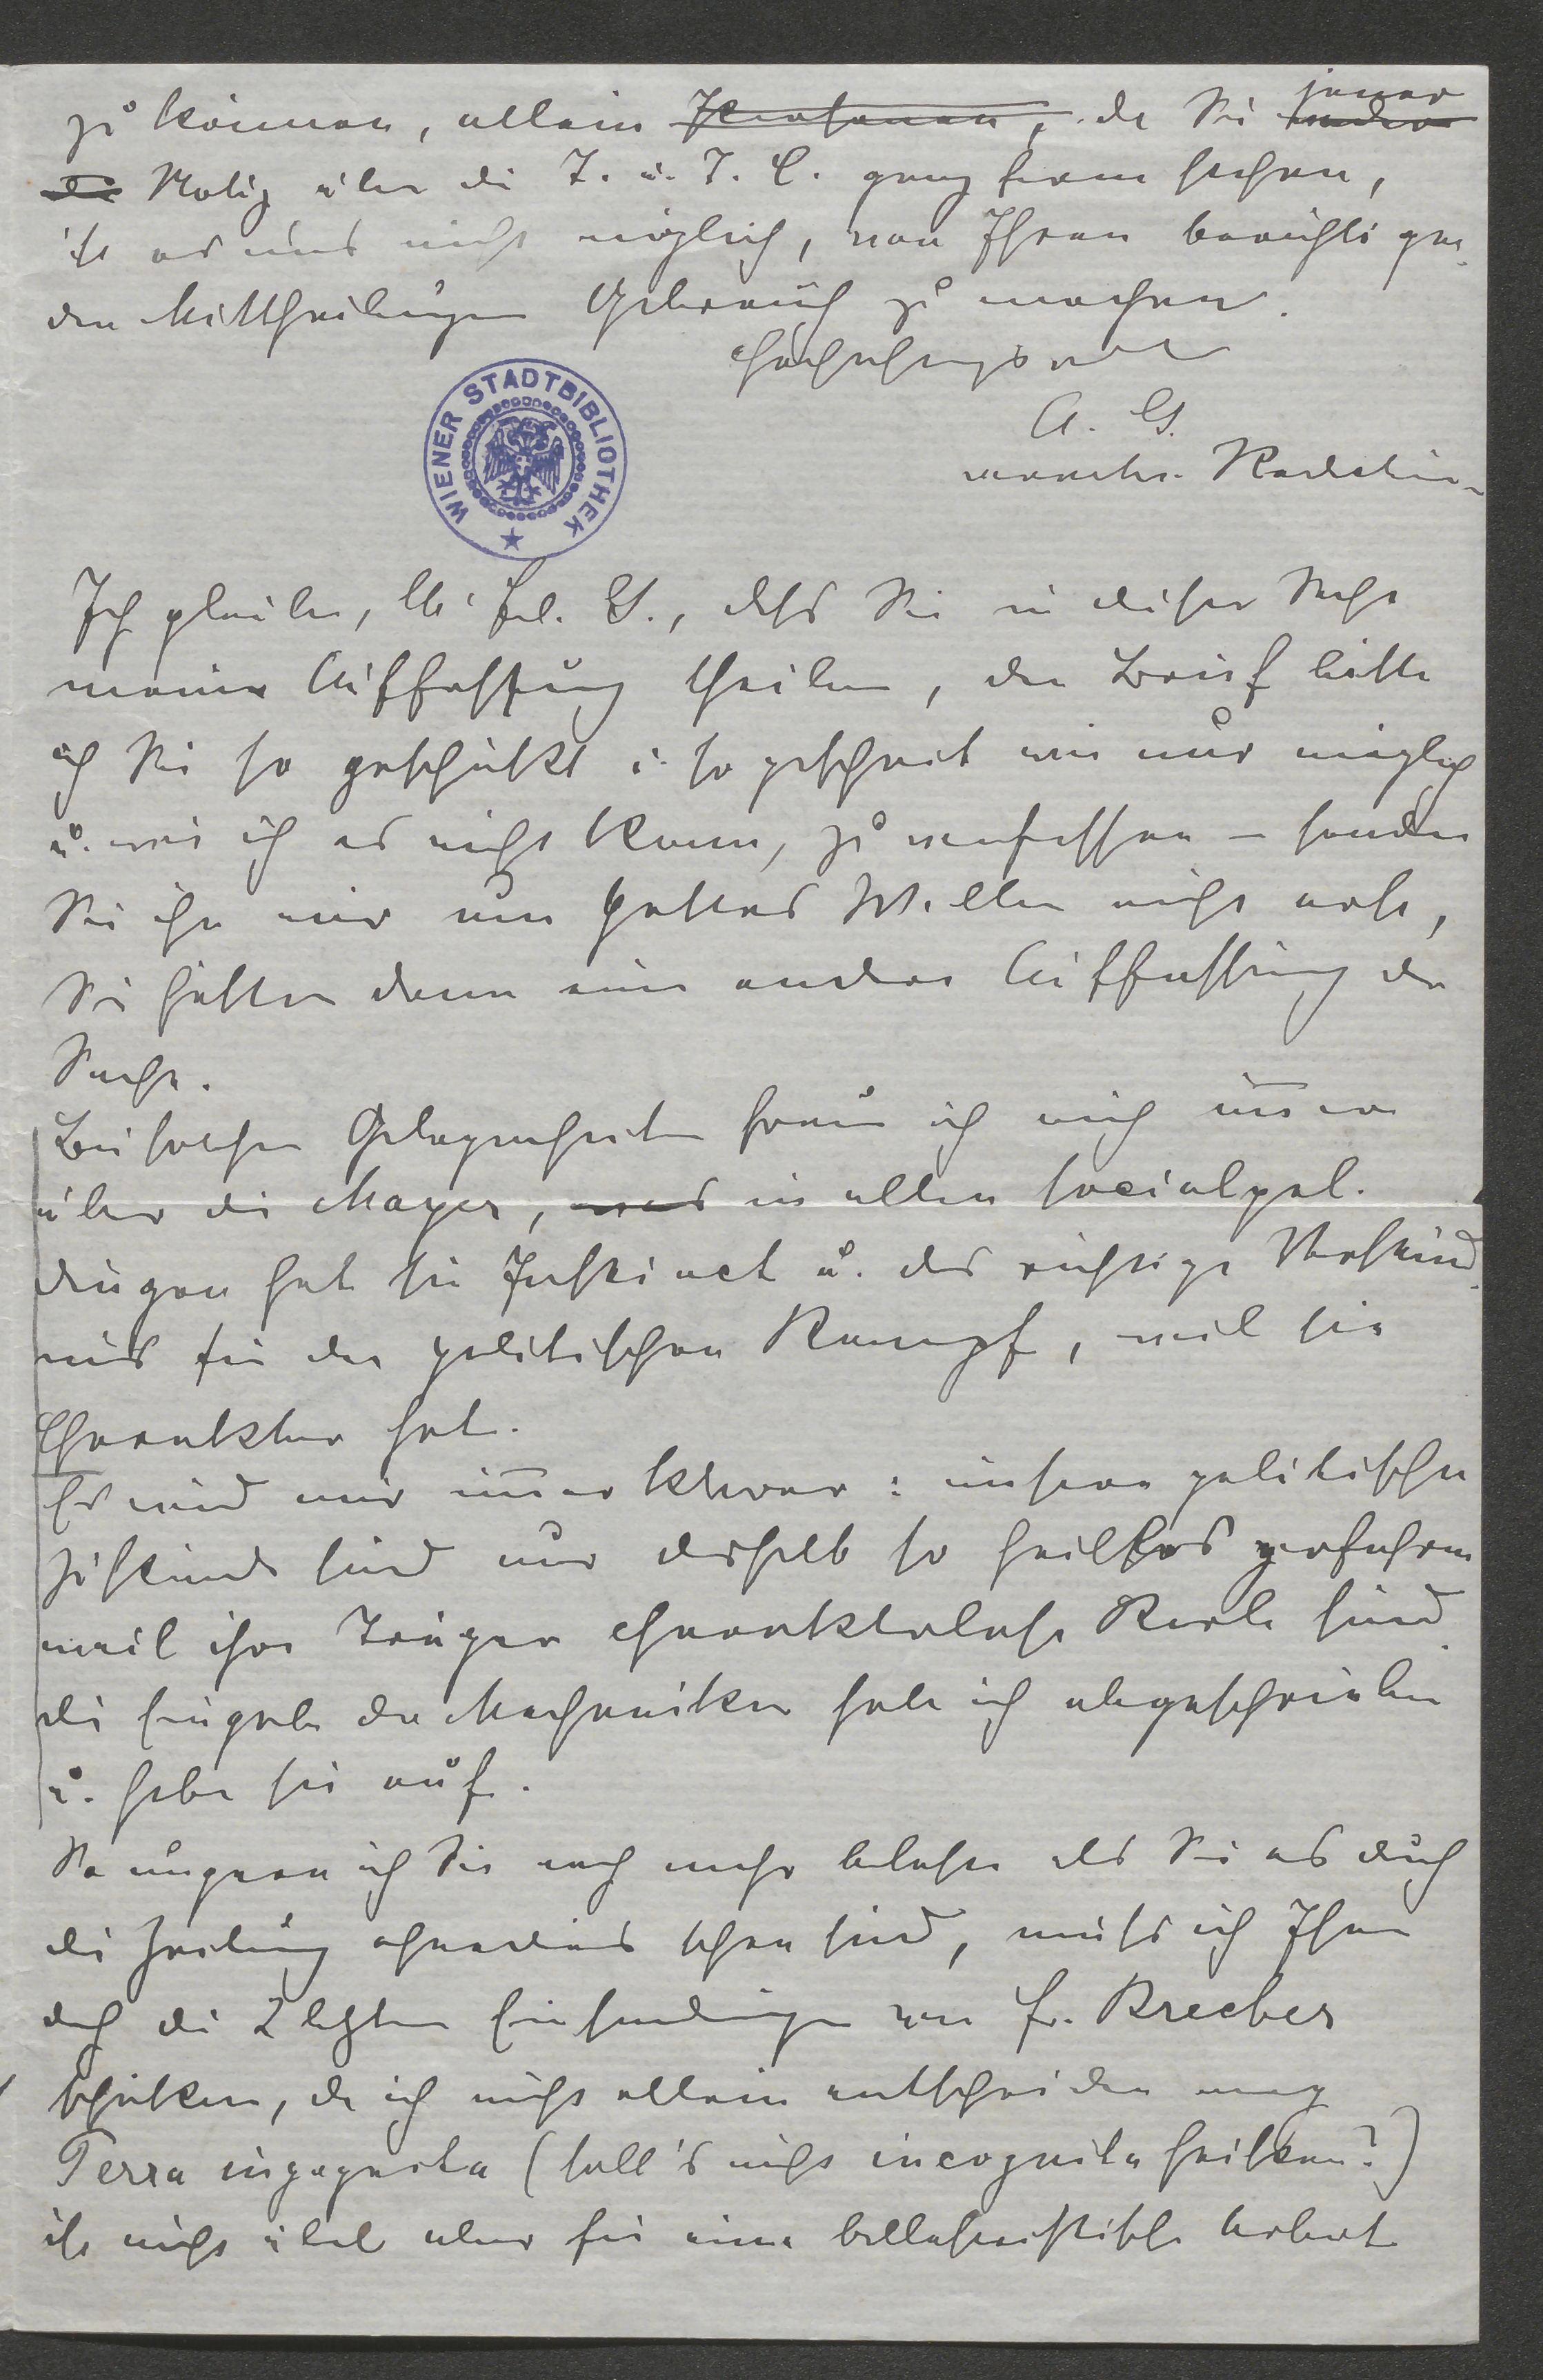 zu können, allein Personen, da Sie jener
die Notiz über die T. u. T. C. ganz fern stehen,
ist es uns nicht möglich, von Ihren berichtigen-
den Mittheilungen Gebrauch zu machen.
Hochachtungsvoll
A. G.
verantw. Redakteur
WIENER STADTBIBLIOTHEK
Ich glaube, lb. Frl. G., daß Sie in dieser Sache
meine Auffassung theilen, den Brief bitte
ich Sie so geschickt u. so gescheit wie nur möglich
u. wie ich es nicht kann, zu verfassen – senden
Sie ihn mir um Gottes Willen nicht erst,
Sie hätten denn eine andere Auffassung der
Sache.
Bei solchen Gelegenheiten freue ich mich im̄er
über die Mayer, was in allen socialpol.
Dingen hat sie Instinct u. das richtige Verständ-
nis für den politischen Kampf, weil sie
Charakter hat.
Es wird mir im̄er klarer: unsere politischen
Zustände sind nur deshalb so heillos verfahren
weil ihre Träger charakterlose Kerle sind.
Die Eingabe der Mechaniker habe ich abgeschrieben
u. hebe sie auf.
So ungern ich Sie noch mehr belaste als Sie es durch
die Zeitung ohnedies schon sind, muß ich Ihnen
doch die 2 letzten Einsendungen von Fr. Brecher
schicken, da ich nicht allein entscheiden mag
Terra ingognita (soll's nicht incognita heißen?)
ist nicht übel aber für eine belletristische Arbeit